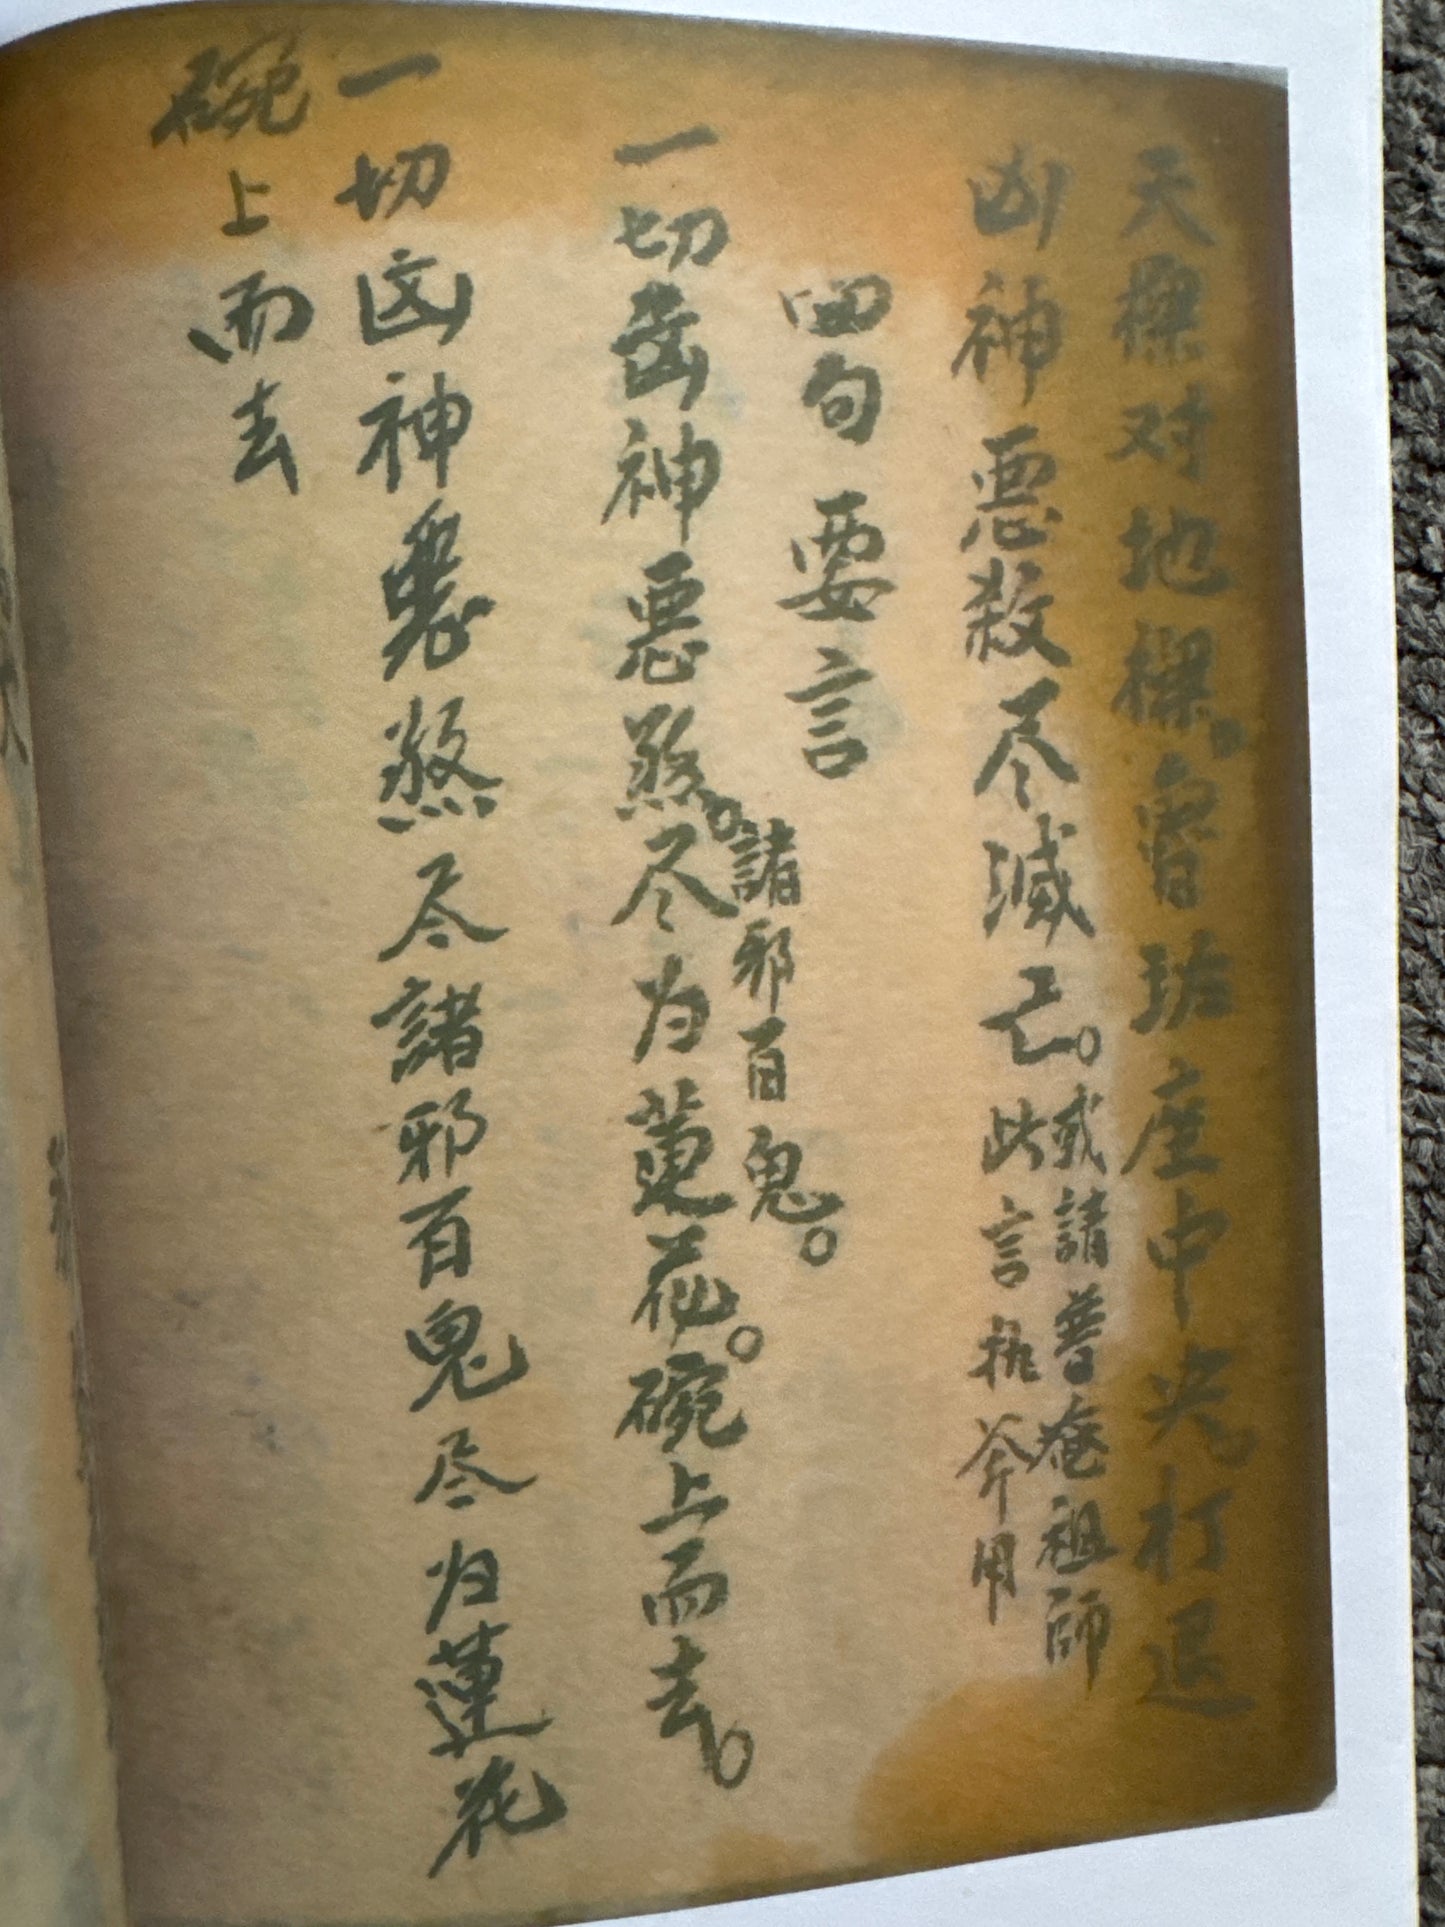 天樑对地樑。魯班座中央。打退
凶神惡殺尽滅亡。
或請普庵祖師
此言执斧用
四句要言
諸邪百鬼。
一切凶神惡煞。尽为蓮花。碗上而去。
一切凶神惡煞尽諸邪百鬼尽归蓮花
碗上而去